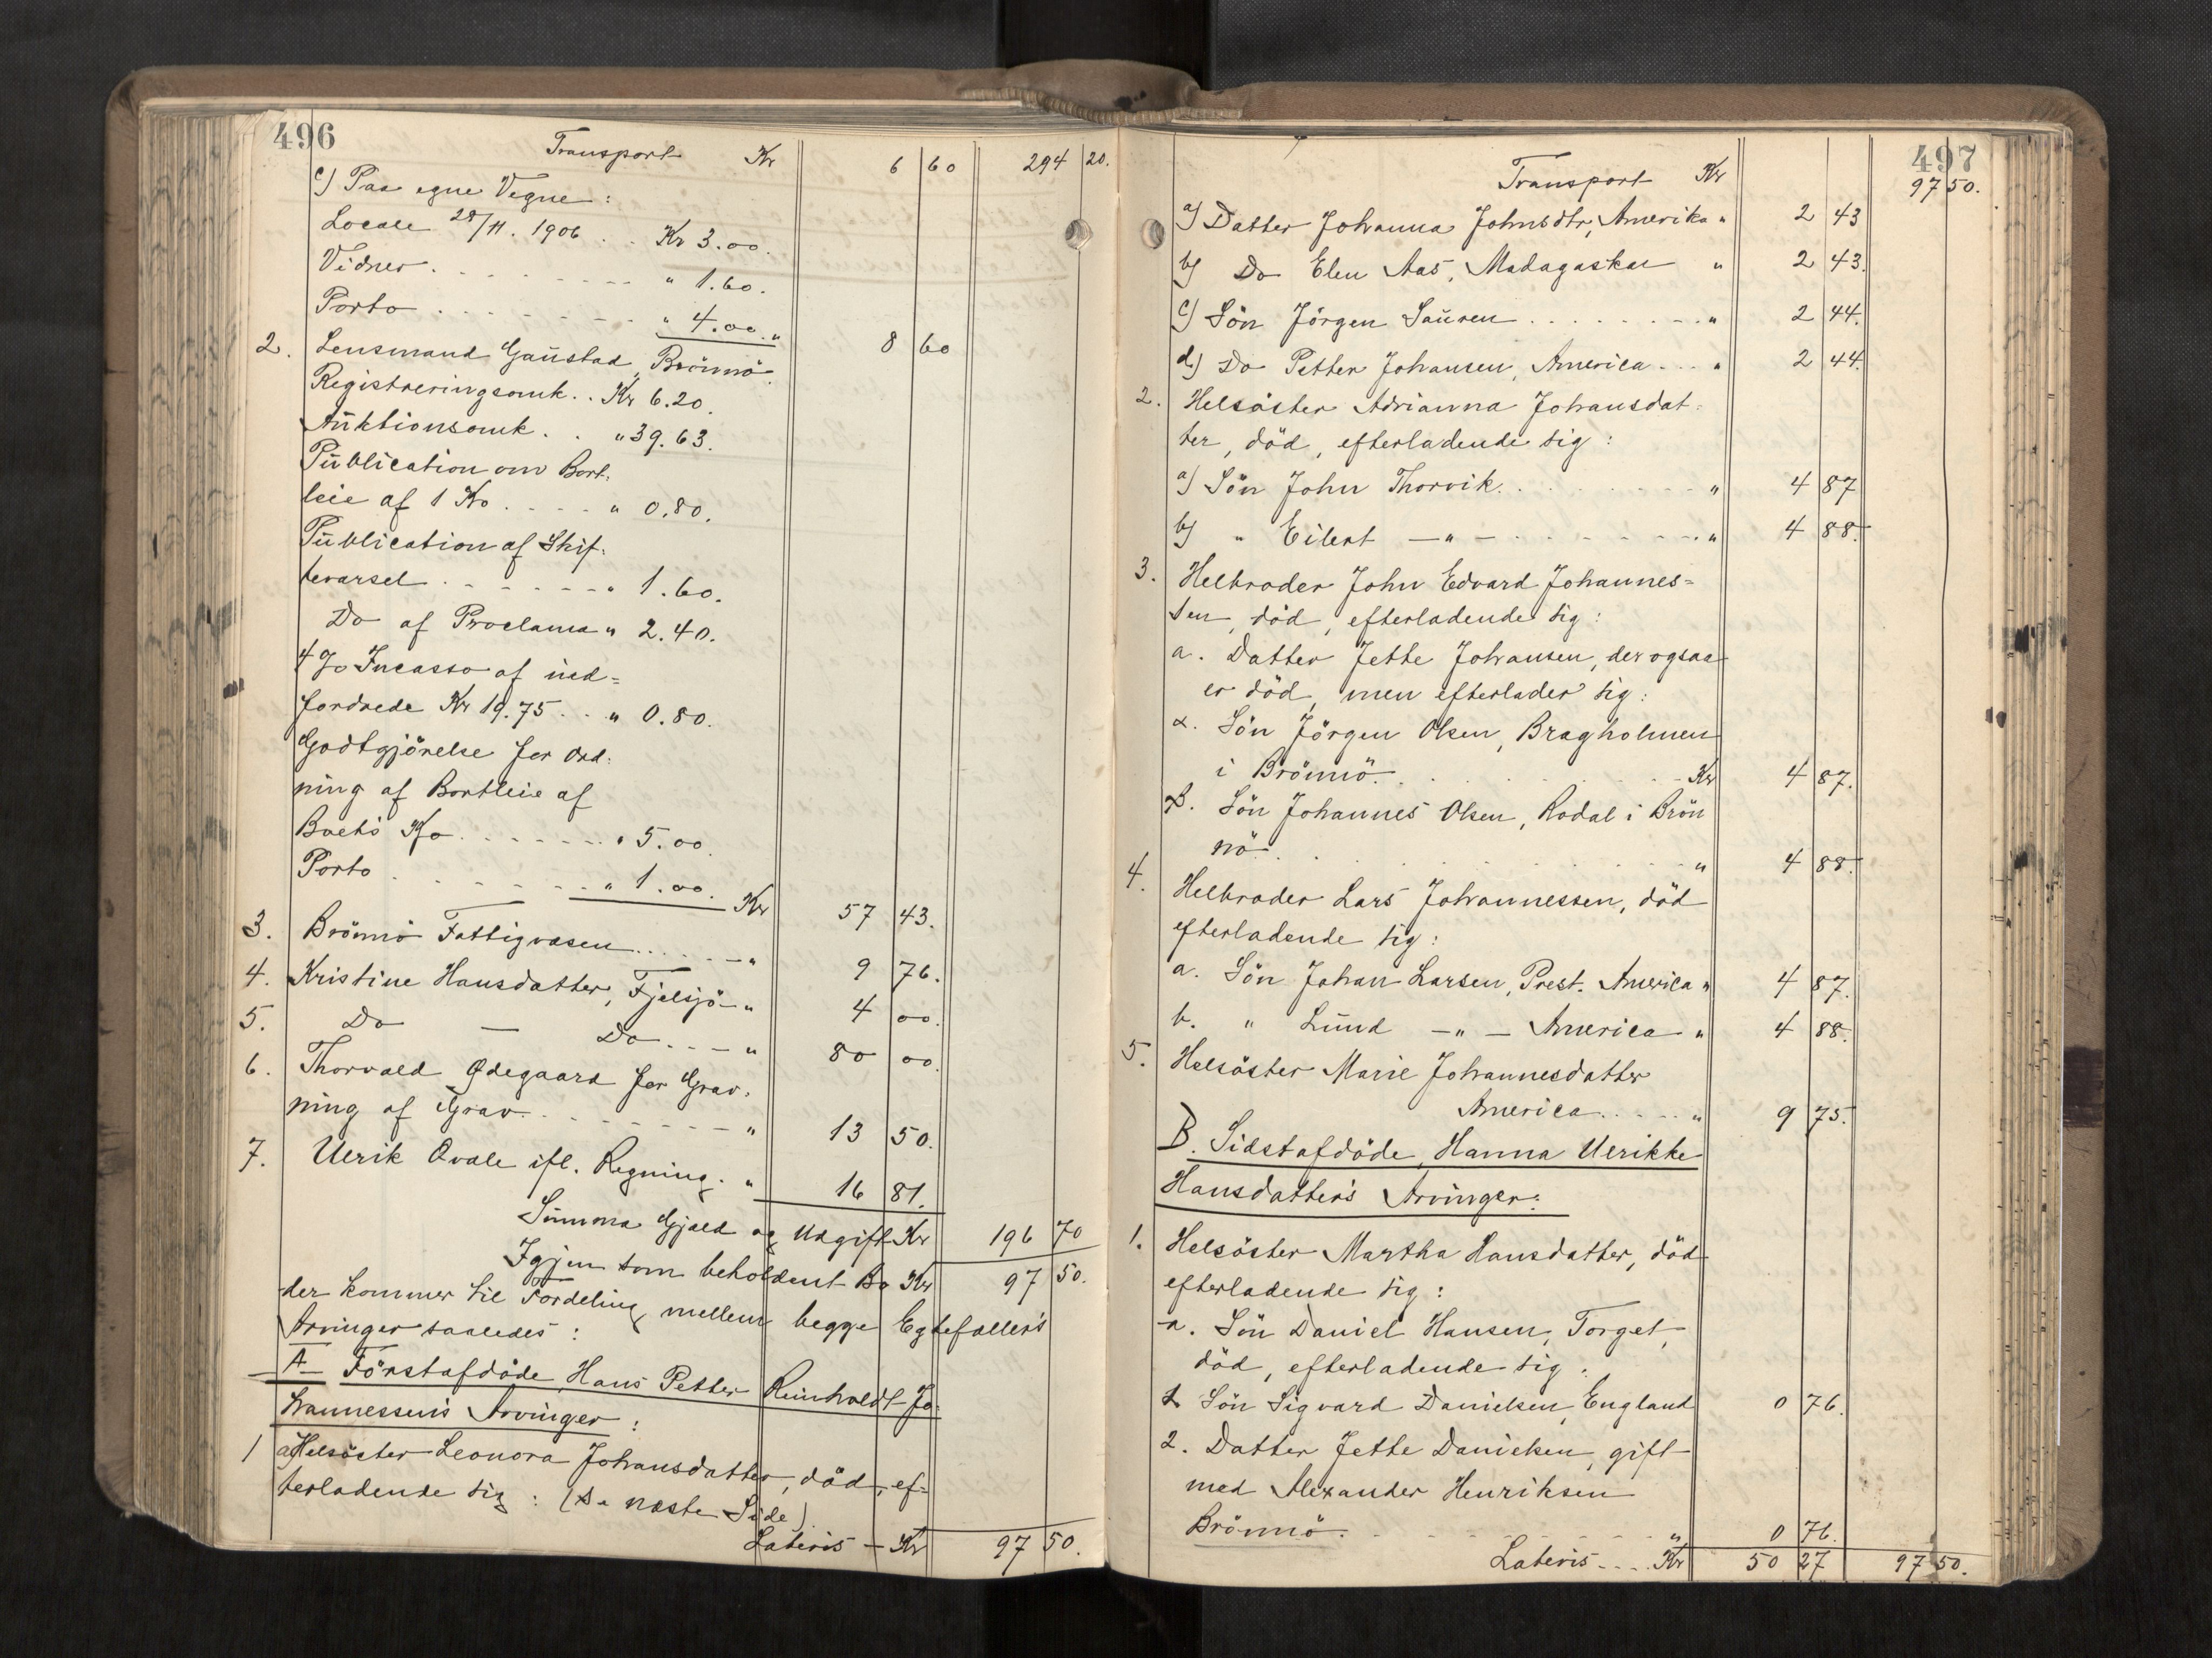 496
Transport Kr 6 60 294 20.
c) Paa egne Vegne:
Locale 28/11. 1906 . . Kr 3.00.
Vidner. . . . . " 1.60.
Porto . . . . . " 4.00. " 8 60
2. Lensmand Gaustad, Brönnö.
Registreringsomk. . Kr 6.20.
Auktionsomk. . . " 39.63.
Publication om Bort-
leie af 1 Ko . . . . " 0.80.
Publication af Skif-
tevarsel . . . . . " 1.60.
Do af Proclama " 2.40.
4 % Incasso af ind-
fordrede Kr 19.75 . . " 0.80.
Godtgjörelse for Ord-
ning af Bortleie af
Boets Ko . . . . . " 5.00.
Porto . . . . . " 1.00. Kr 57 43.
3. Brönnö Fattigvæsen . . . . . " 9 76.
4. Kristine Hansdatter, Fjelsjö - " 4 00.
5. Do — Do . . - " 80 00.
6. Thorvald Ødegaard for Grav-
ning af Grav. . . . . . " 13 50.
7. Ulrik Qvale ifl. Regning. " 16 81.
Summa Gjæld og Udgift Kr 196 70
Igjen som beholdent Bo Kr 97 50.
der kommer til Fordeling mellem begge Egtefællers
Arvinger saaledes:
A Förstafdöde, Hans Petter Reinholdt Jo-
hannessens Arvinger:
1 a) Helsöster Leonora Johansdatter, död, ef-
terladende sig: (se næste Side).
Lateris — Kr 97 50.
497
Transport Kr 97 50.
a) Datter Johanna Johnsdtr, Amerika " 2 43
b) Do Elen Aas, Madagaskar " 2 43.
c) Sön Jörgen Sauren . . . . . " 2 44.
d) Do Petter Johansen, America . . . " 2 44.
2. Helsöster Adrianna Johansdat-
ter, död, efterladende sig:
a) Sön John Thorvik. . . . . " 4 87
b) " Eilert —"— . . . . . " 4 88.
3. Helbroder John Edvard Johannes=
sen, död, efterladende sig:
a. Datter Jette Johansen, der ogsaa
er död, men efterlader sig:
α. Sön Jörgen Olsen, Bragholmen
i Brönnö. . . . . . Kr 4 87.
β. Sön Johannes Olsen, Rodal i Brön
nö . . . . . " 4 88.
4. Helbroder Lars Johannessen, död
efterladende sig:
a. Sön Johan Larsen, Prest. America " 4 87.
b. " Lund —"— America " 4 88.
5. Helsöster Marie Johannesdatter
America . . . . . " 9 75.
B. Sidstafdöde, Hanna Ulrikke
Hansdatter's Arvinger:
1. Helsöster Martha Hansdatter, död
efterladende sig:
a. Sön Daniel Hansen, Torget,
död, efterladende sig:
1. Sön Sigvard Danielsen, England 0 76.
2. Datter Jette Danielsen, gift
med Alexander Henriksen
Brönnö. . . . . . " 0 76.
Lateris . . . . Kr 50 27 97 50.